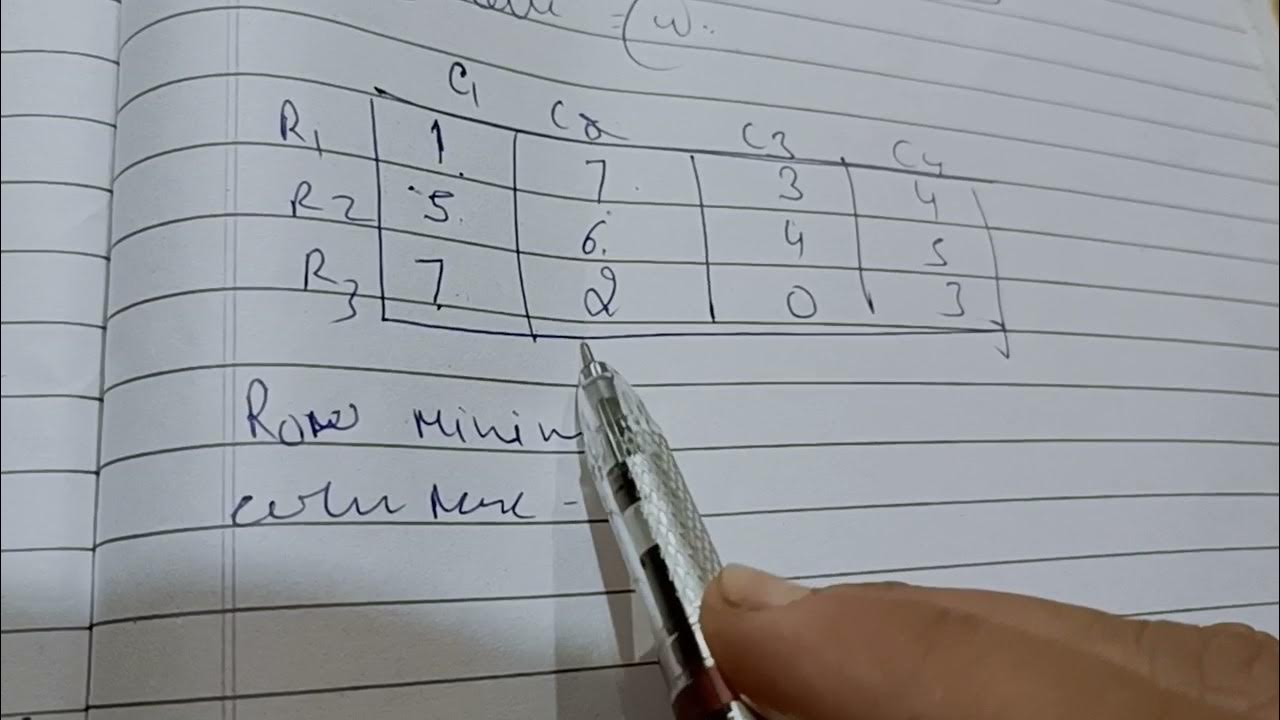 C1 C2 C3 C4
R1 1 7 3 4
R2 5 6 4 5
R3 7 2 0 3
Row Minim
colu Max -